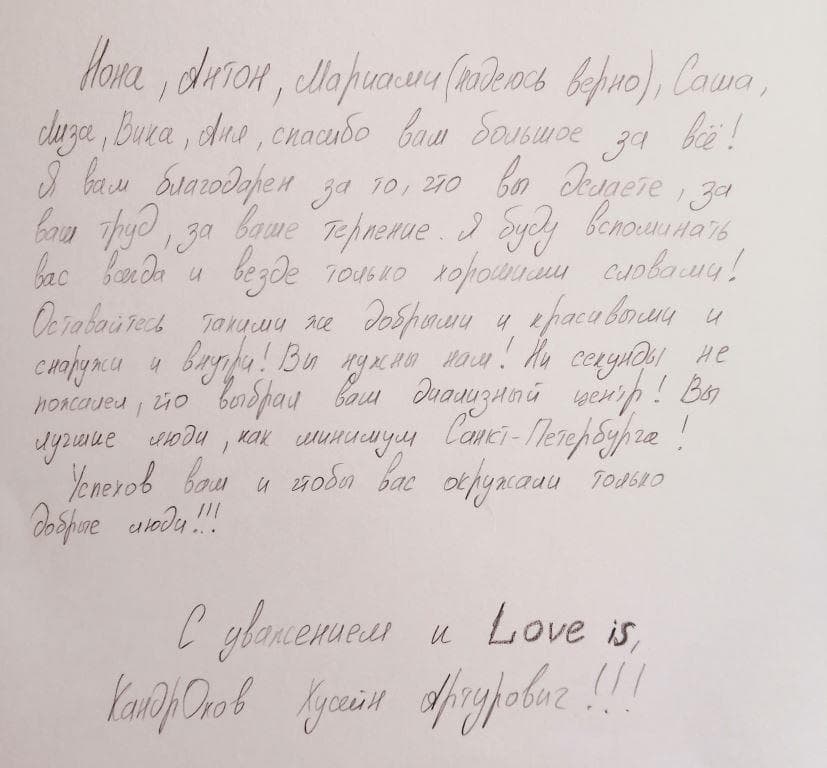 Нона, Антон, Мариами (надеюсь верно), Саша,
Лиза, Вика, Аня, спасибо вам большое за всё!
Я вам благодарен за то, что вы делаете, за
ваш труд, за ваше терпение. Я буду вспоминать
вас всегда и везде только хорошими словами!
Оставайтесь такими же добрыми и красивыми и
снаружи и внутри! Вы нужны нам! Ни секунды не
пожалел, что выбрал ваш диализный центр! Вы
лучшие люди, как минимум Санкт-Петербурга!
Успехов вам и чтобы вас окружали только
добрые люди!!!
С уважением и Love is,
КандрОков Хусейн Артурович!!!